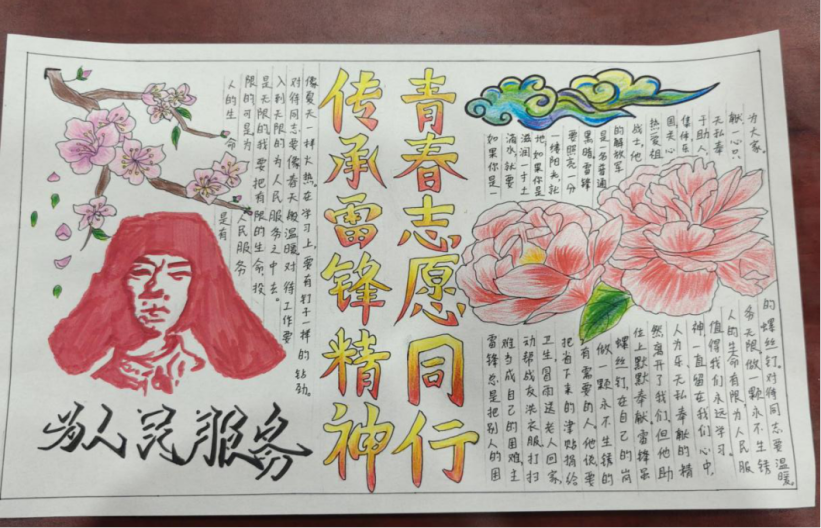 青春志愿同行
传承雷锋精神
人的生命是有
限的可是为人民服务
是无限的我要把有限的生命,投
入到无限的为人民服务之中去。
对待同志要像春天般温暖。对待工作要
像夏天一样火热。在学习上,要有钉子一样的钻劲。
为人民服务
如果你是一
滴水,就要
滋润一寸土
地,如果你是
一缕阳光,就
要照亮一分
黑暗,雷锋
是一名普通
的解放军
战士,他
热爱祖
国,关心
集体,乐
于助人,
无私奉
献,一心只
为大家。
雷锋总是把别人的困
难当成自己的困难,主
动帮战友洗衣服,打扫
卫生,冒雨送老人回家,
把省下来的津贴捐给
有需要的人,他说,要
做一颗永不生锈的
螺丝钉,在自己的岗
位上默默奉献,雷锋虽
然离开了我们,但他助
人为乐,无私奉献的精
神一直留在我们心中,
值得我们永远学习。
人的生命有限,为人民服
务无限,做一颗永不生锈
的螺丝钉。对待同志要温暖。